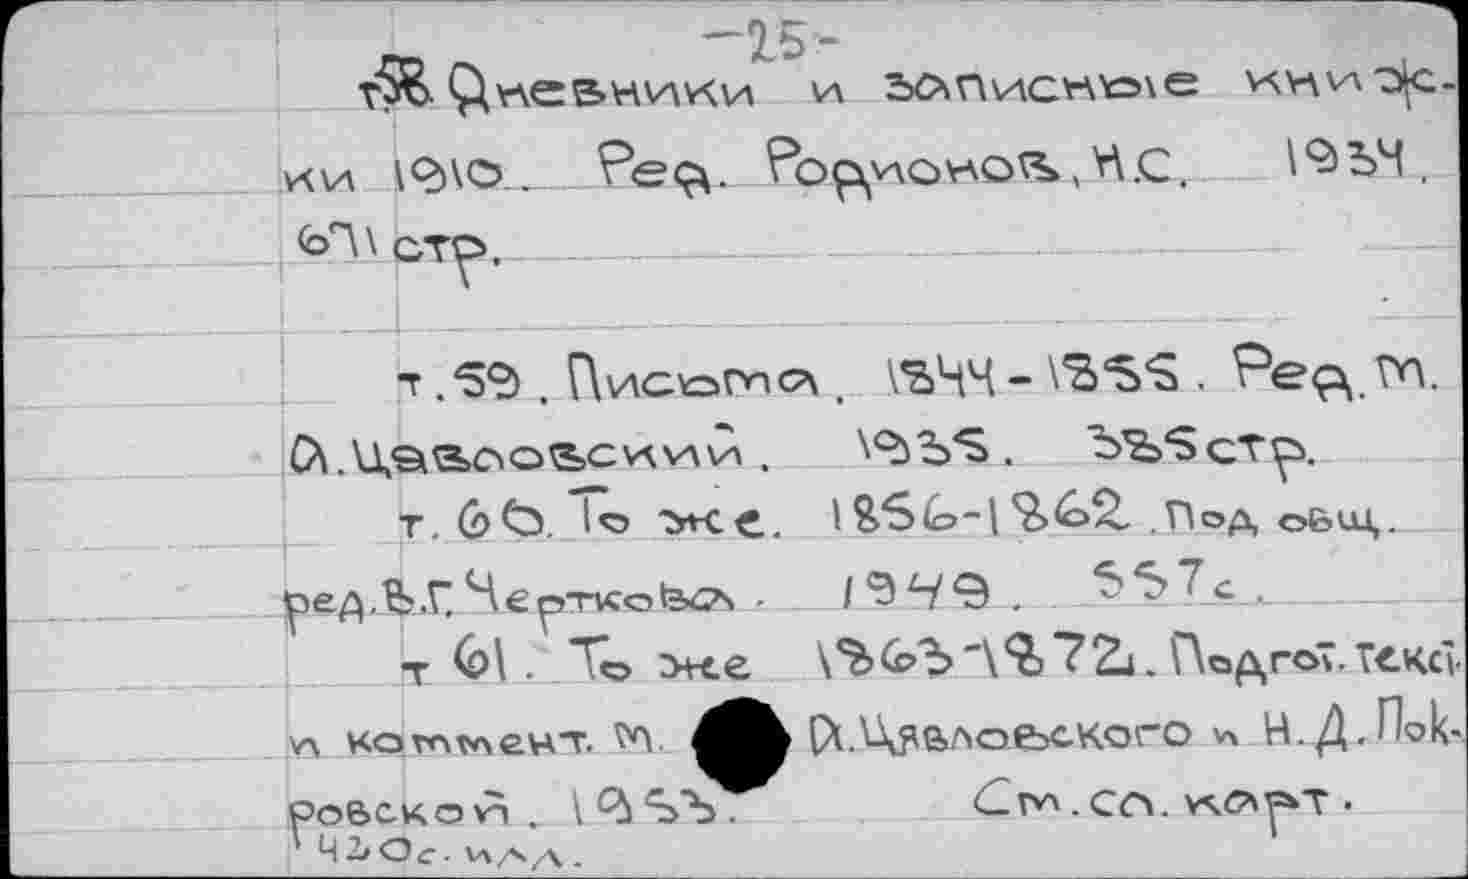 -25-
т.58. Дневники и записные книж-
ки 1910. Ред. Родионов, Н.С. 1934.
671 стр.
т.59. Письма. 1844-1855. Ред. М.
А. Цявловский. 1935. 385 стр.
т.60. То же. 1856-1862. Под общ.
ред. В.Г. Черткова. 1949. 557с.
т 61. То же 1863-1872. Подгот. текст
и коммент. М. А. Цявловского и Н.Д. Пок-
ровской. 1953. См. сл. карт.
420с. илл.